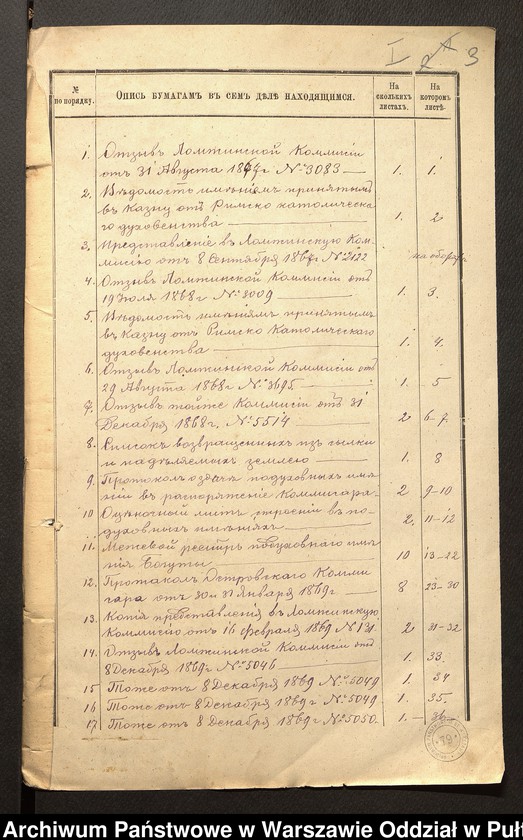 I 2 3
№ по порядку. Опись бумагамъ въ семъ дѣлѣ находящимся. На сколькихъ листахъ. На которомъ листѣ.
1. Отзывъ Ломжинской Коммисіи
отъ 31 Августа 1867г № 3083 — 1. 1.
2. Вѣдомость имѣніямъ принятымъ
въ Казну отъ Римско католическа-
го духовенства — 1. 2
3. Представленіе въ Ломжинскую Ком-
миссію отъ 8 Сентября 1867г № 2122 на оборотѣ
4. Отзывъ Ломжинской Коммисіи отъ
19 Юля 1868г № 3009 — 1. 3.
5. Вѣдомость имѣніямъ принятымъ
въ Казну отъ Римско Католическаго
духовенства — 1. 4.
6. Отзывъ Ломжинской Коммисіи отъ
29 Августа 1868г № 3695 — 1. 5
7. Отзывъ тойже Коммисіи отъ 31
Декабря 1868г. № 5514 — 2 6-7.
8. Списокъ возвращенныхъ изъ ссылки
и надѣляемыхъ землею — 1. 8
9. Протоколъ о здачѣ подуховныхъ имѣ-
ній въ распоряженіе Коммисара — 2 9-10
10 Оцѣночный листъ строеній въ по-
духовныхъ имѣніяхъ — 2. 11-12
11. Межевой реестръ подуховнаго имѣ-
нія Богуты — 10 13-22
12. Протоколъ Островскаго Комми-
сара отъ 30 и 31 Января 1869г — 8 23-30
13. Копія представленія въ Ломжинскую
Коммисію отъ 16 Февраля 1869 № 131. 2 31-32
14. Отзывъ Ломжинской Коммисіи отъ
8 Декабря 1869г № 5046 1. 33.
15 Тоже отъ 8 Декабря 1869 № 5049 1. 34
16 Тоже отъ 8 Декабря 1869г № 5049. 1. 35.
17 Тоже отъ 8 Декабря 1869г № 5050. 1. — 36 —
19
Archiwum Państwowe w Warszawie Oddział w Puł